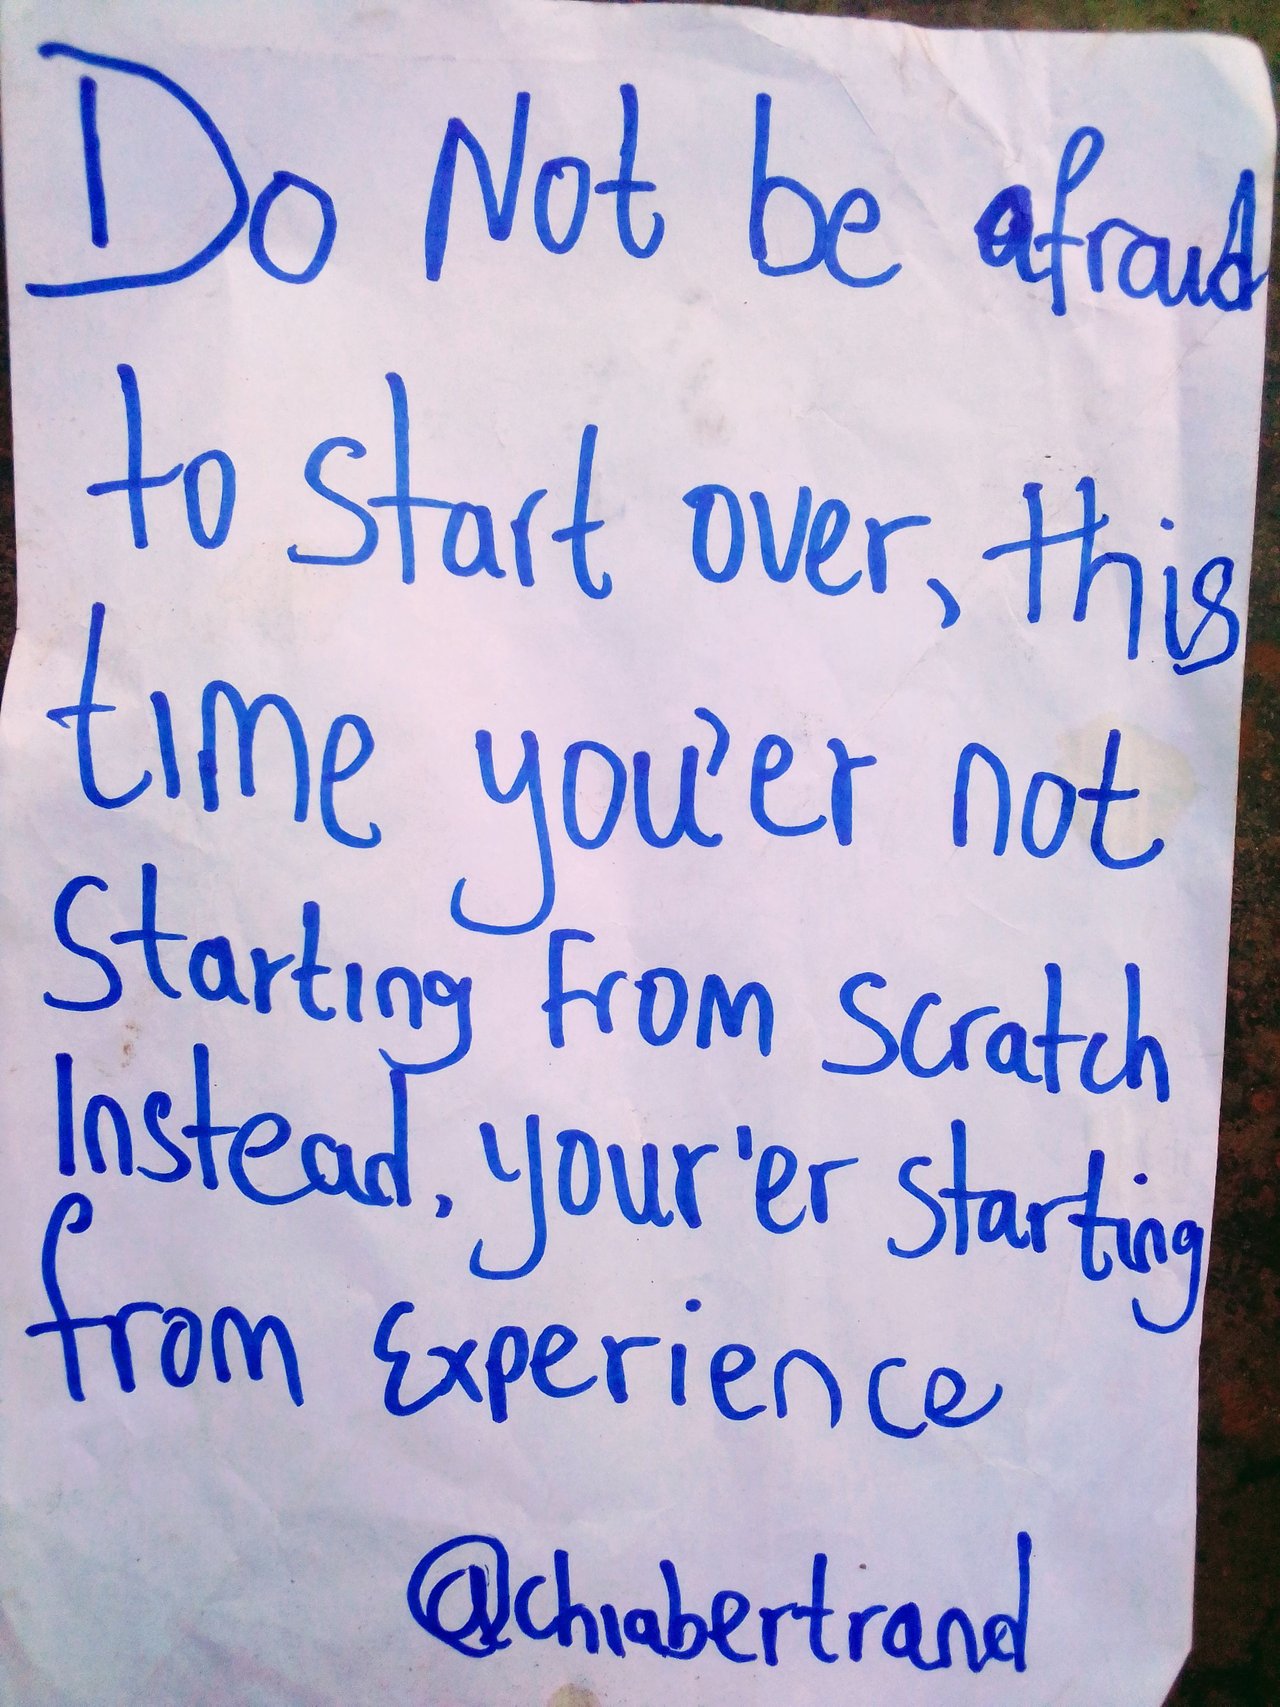 Do Not be afraid
to start over, this
time you'er not
Starting from scratch
Instead, your'er starting
from Experience
@chiabertrand